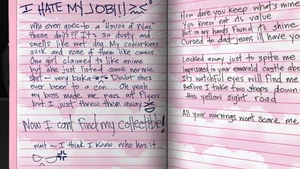 I HATE MY JOB!!
Who ever goes to a House of Wax
these days?? It's so dusty and
smells like wet dog. My coworkers
suck and none of them like comes.
One girl claimed to like anime
but she just listed some normie
ass very basic. Doubt she's
ever been to a con. Oh yeah
my boss made me pass out flyers
but I just threw them away
Now I can't find my collectible!
wait - I think I know who has it...
How dare you keep what's mine
You knew not its value
But in my hands found its shine
Cursed to dad jeans ill have you
Locked away just to spite me
Imprisoned in your emerald castle abo
It's watchful eyes will find me
Before I take two steps down
the yellow sight road
All your warnings wont scare me